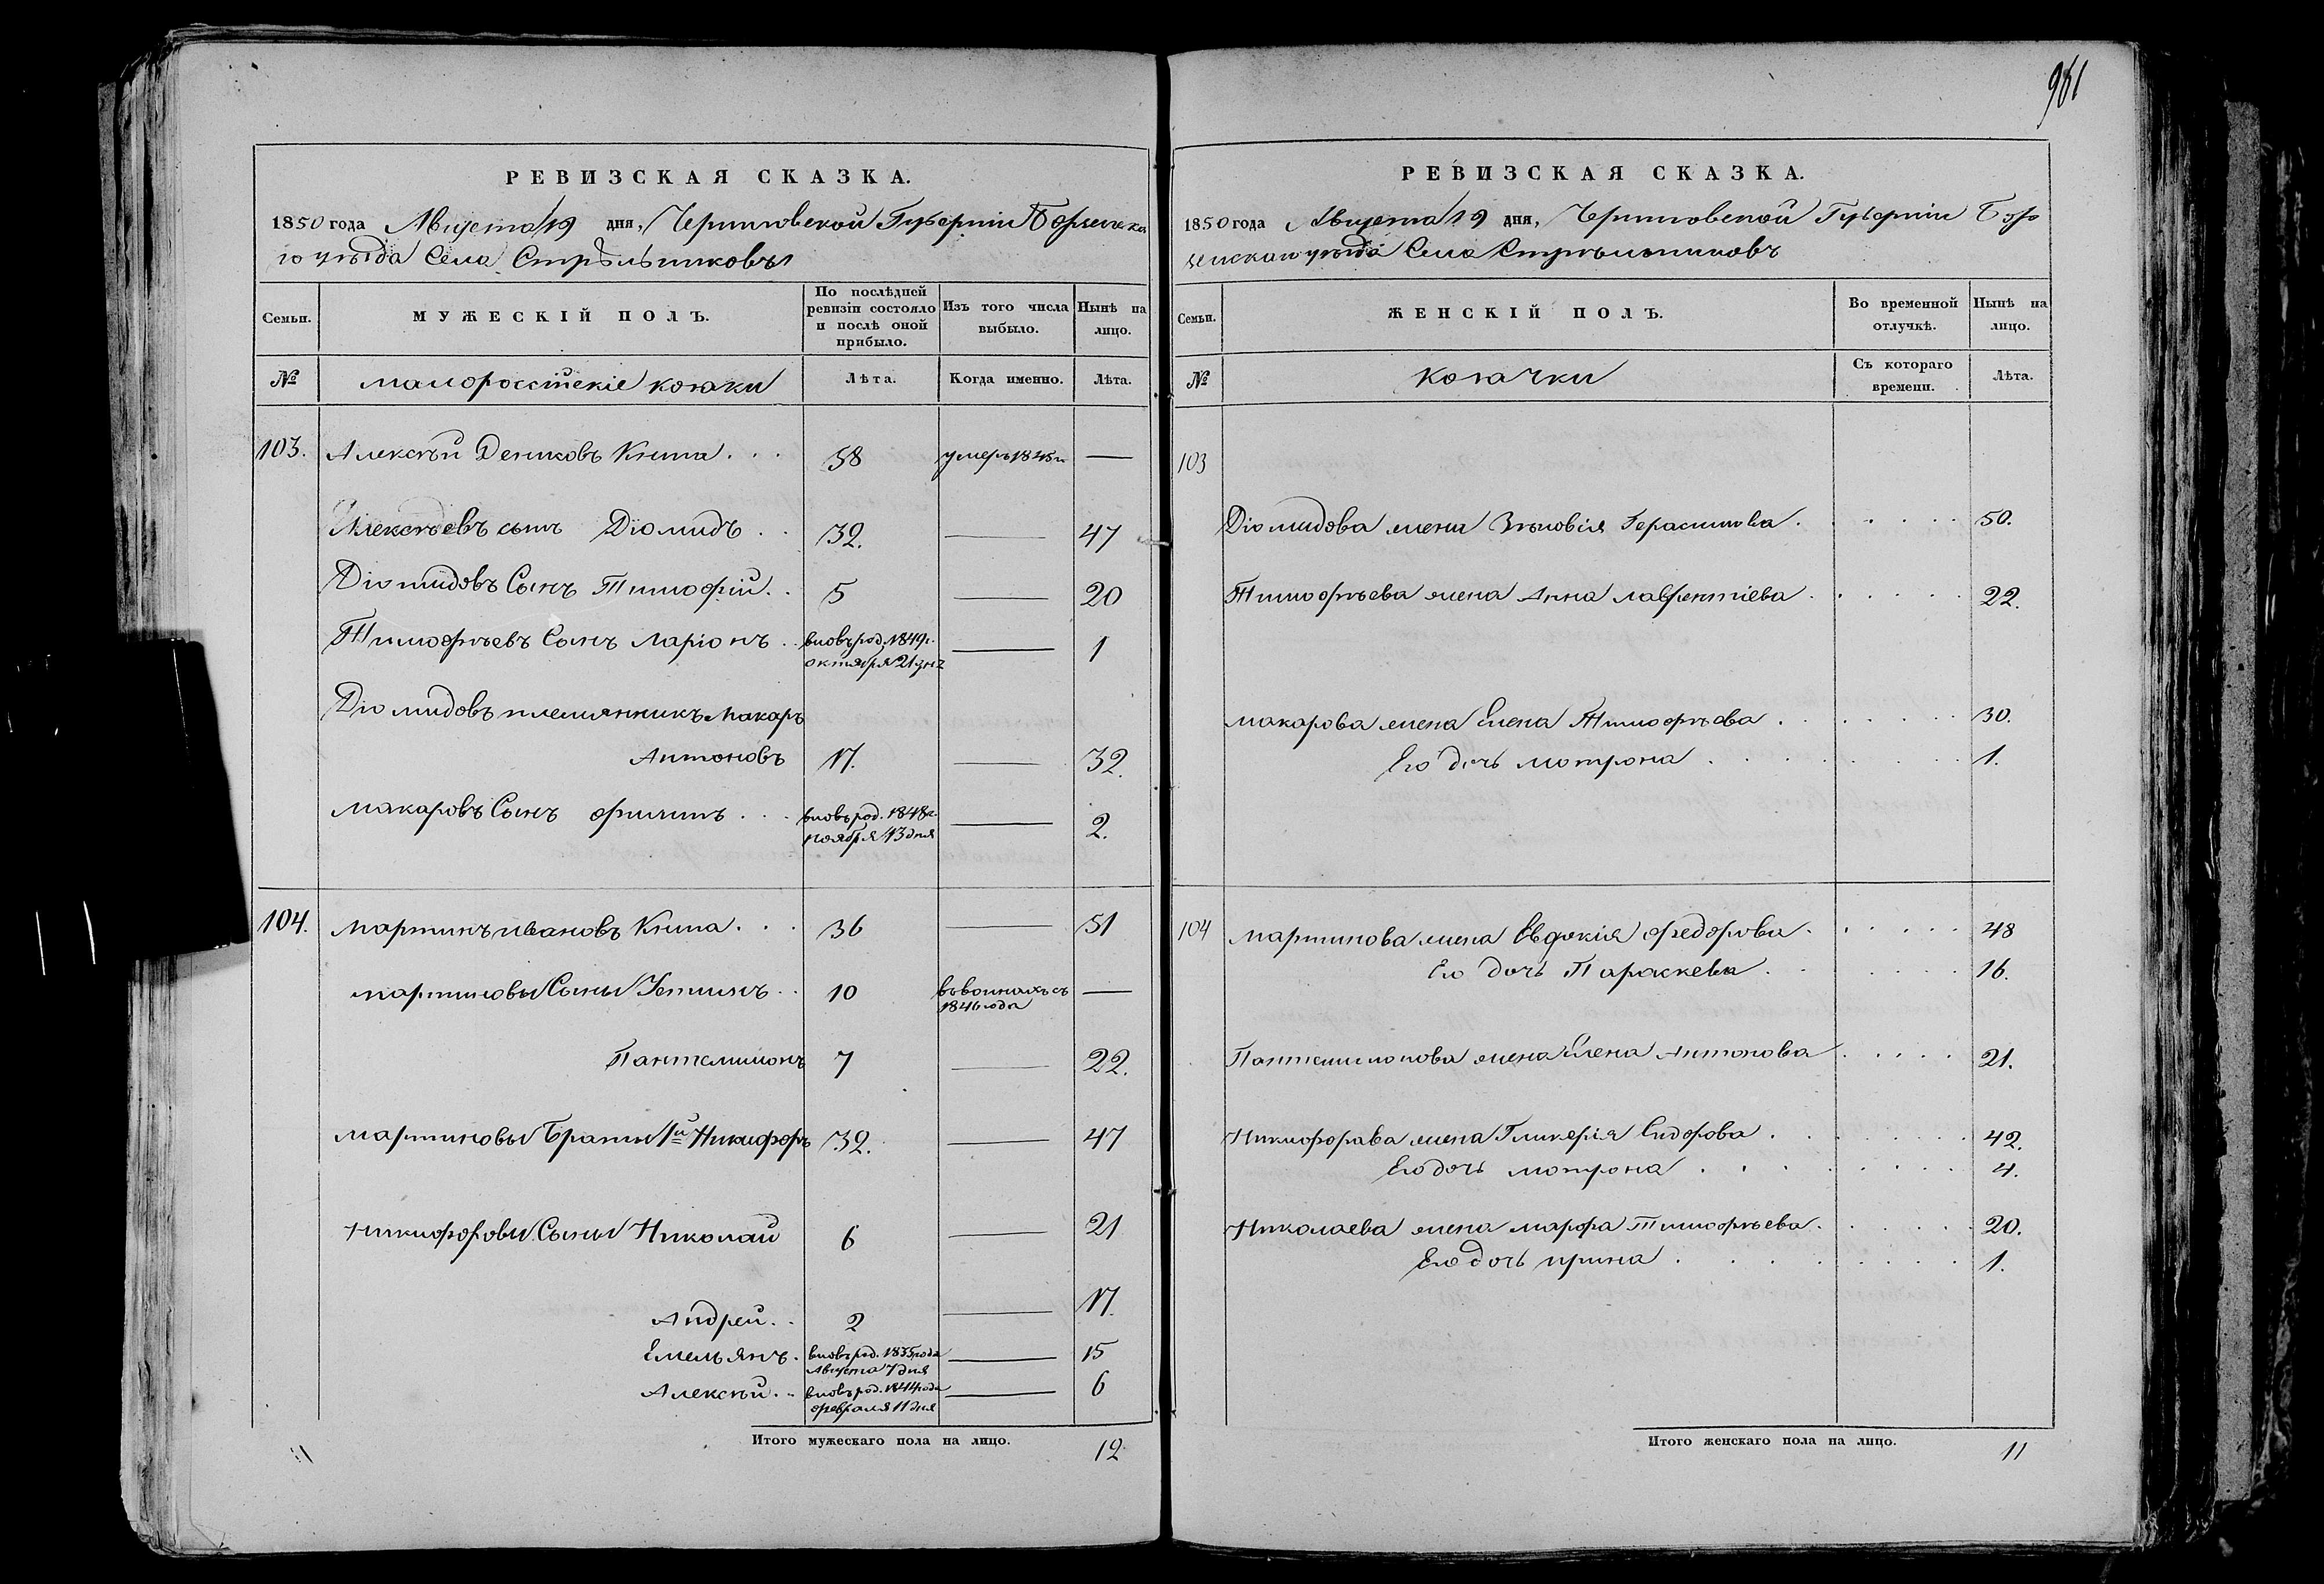 961
РЕВИЗСКАЯ СКАЗКА.
1850 года Августа 19 дня, Черниговской Губерніи Борзенска
го уѣзда Села Стрѣльниковъ
Семьи.
МУЖЕСКІЙ ПОЛЪ.
По послѣдней ревизіи состояло и послѣ оной прибыло.
Изъ того числа выбыло.
Нынѣ на лицо.
№
малороссійскіе козаки
Лѣта.
Когда именно.
Лѣта.
103. Алексѣй Дениковъ Книша . . . 58 умеръ 1845 г. —
Алексѣевъ сынъ Діомидъ . . 32. — 47
Діомидовъ Сынъ Тимофій . . 5 — 20
Тимофѣевъ Сынъ Ларіонъ . . вновь род. 1849 г. октября 21 дня — 1
Діомидовъ племянникъ Макаръ
Антоновъ 17. — 32.
Макаровъ Сынъ Филипъ . . . вновь род. 1848 г. ноября 13 дня — 2.
104. Мартинъ Ивановъ Книша . . . 36 — 51
Мартиновы Сыны Устинъ . . 10 въ воинахъ съ 1846 года —
Пантелимонъ 7 — 22.
Мартиновы Браты 1й Никифоръ 32. — 47
Никифоровы Сыны Николай 6 — 21
Андрей . . 2 — 17.
Емельянъ . вновь род. 1835 года Августа 7 дня — 15
Алексѣй . . вновь род. 1844 года февраля 11 дня — 6
Итого мужескаго пола на лицо. 12
РЕВИЗСКАЯ СКАЗКА.
1850 года Августа 19 дня, Черниговской Губерніи Бор
зенскаго уѣзда Села Стрѣльниковъ
Семьи.
ЖЕНСКІЙ ПОЛЪ.
Во временной отлучкѣ.
Нынѣ на лицо.
№
козачки
Съ котораго времени.
Лѣта.
103
Діомидова жена Зѣновія Герасимова . . . . . 50.
Тимофѣева жена Анна Лаврентіева . . . . . 22.
Макарова жена Елена Тимофѣева . . . . . 30.
Его дочь Мотрона . . . . . 1.
104 Мартинова жена Евдокія Федорова . . . . . 48
Его дочь Параскева . . . . . 16.
Пантелимонова жена Елена Антонова . . . . 21.
Никифорава жена Гликерія Сидорова . . . . . 42.
Его дочь Мотрона . . . . . 4.
Николаева жена Марфа Тимофѣева . . . . . 20.
Его дочь Ирина . . . . . 1.
Итого женскаго пола на лицо. 11